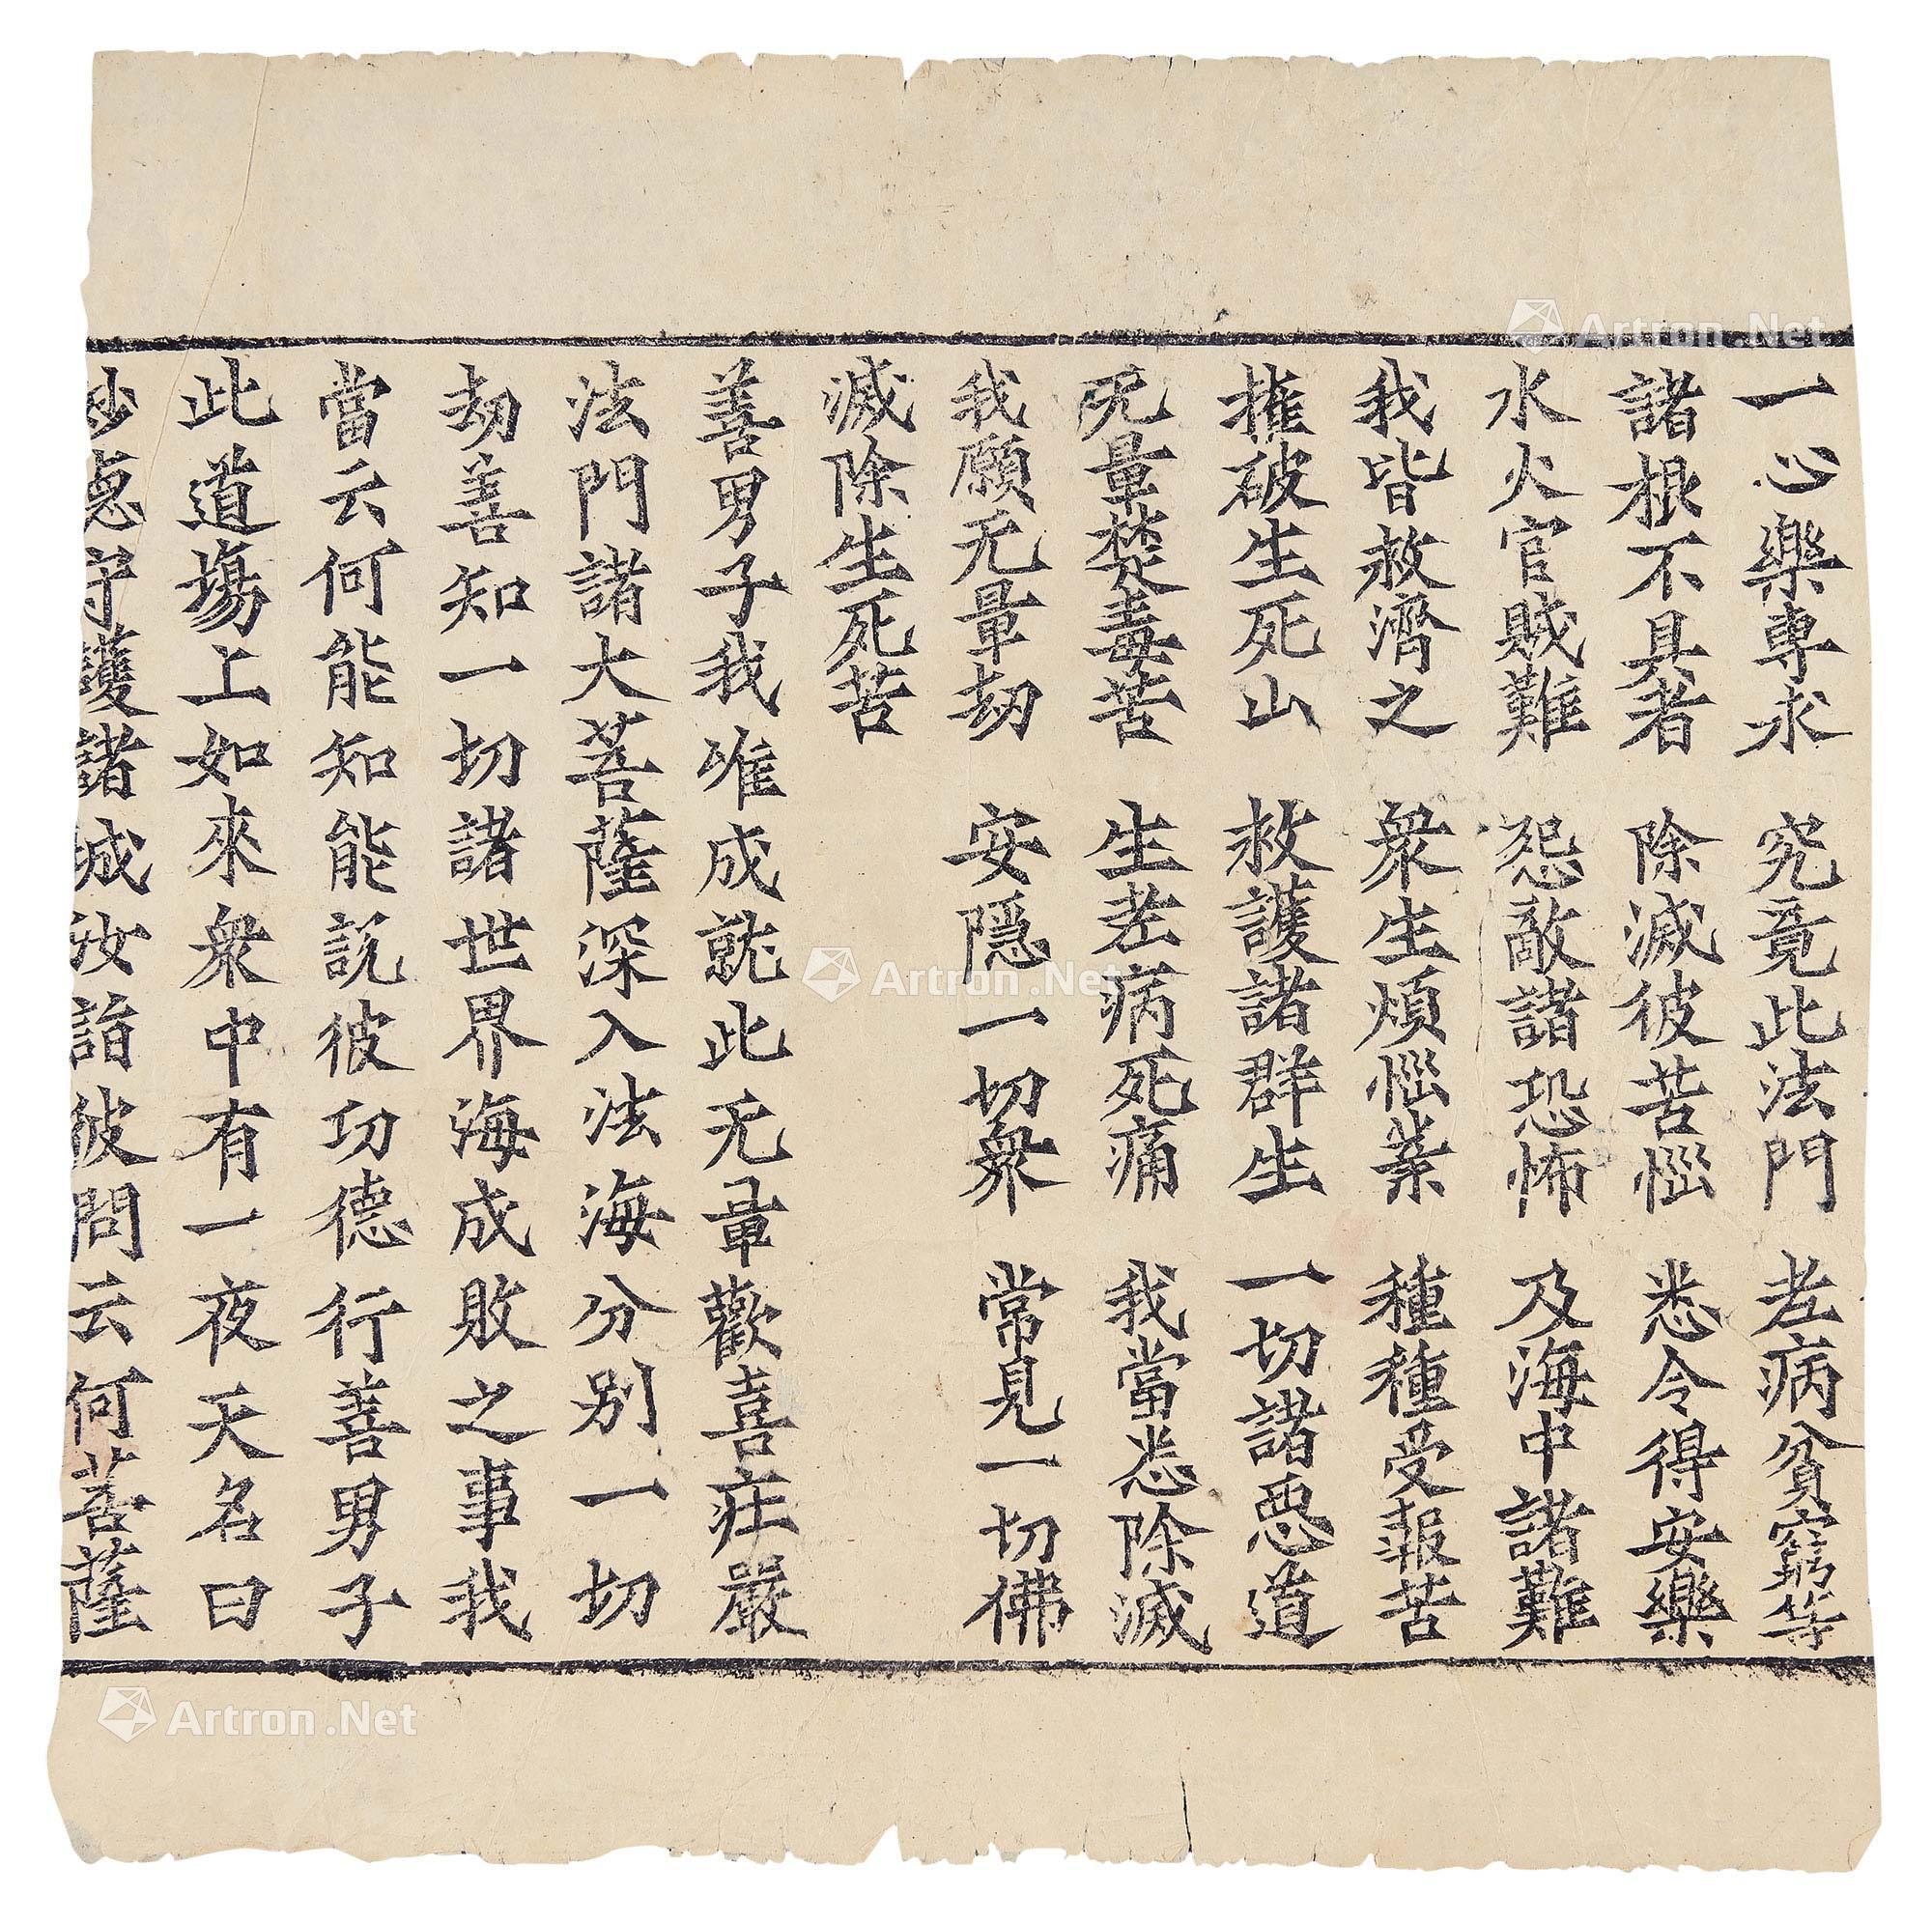 一心樂専求　究竟此法門　老病貧窮等
諸根不具者　除滅彼苦惱　悉令得安樂
水火官賊難　怨敵諸恐怖　及海中諸難
我皆救濟之　衆生煩惱業　種種受報苦
摧破生死山　救護諸群生　一切諸惡道
无量楚毒苦　生老病死痛　我當悉除滅
我願无量劫　安隱一切衆　常見一切佛
滅除生死苦
善男子我唯成就此无量歡喜莊嚴
法門諸大菩薩深入法海分别一切
劫善知一切諸世界海成敗之事我
當云何能知能説彼功德行善男子
此道場上如來衆中有一夜天名曰
妙德守護諸城汝詣彼問云何菩薩
Artron.Net
Artron.Net
Artron.Net